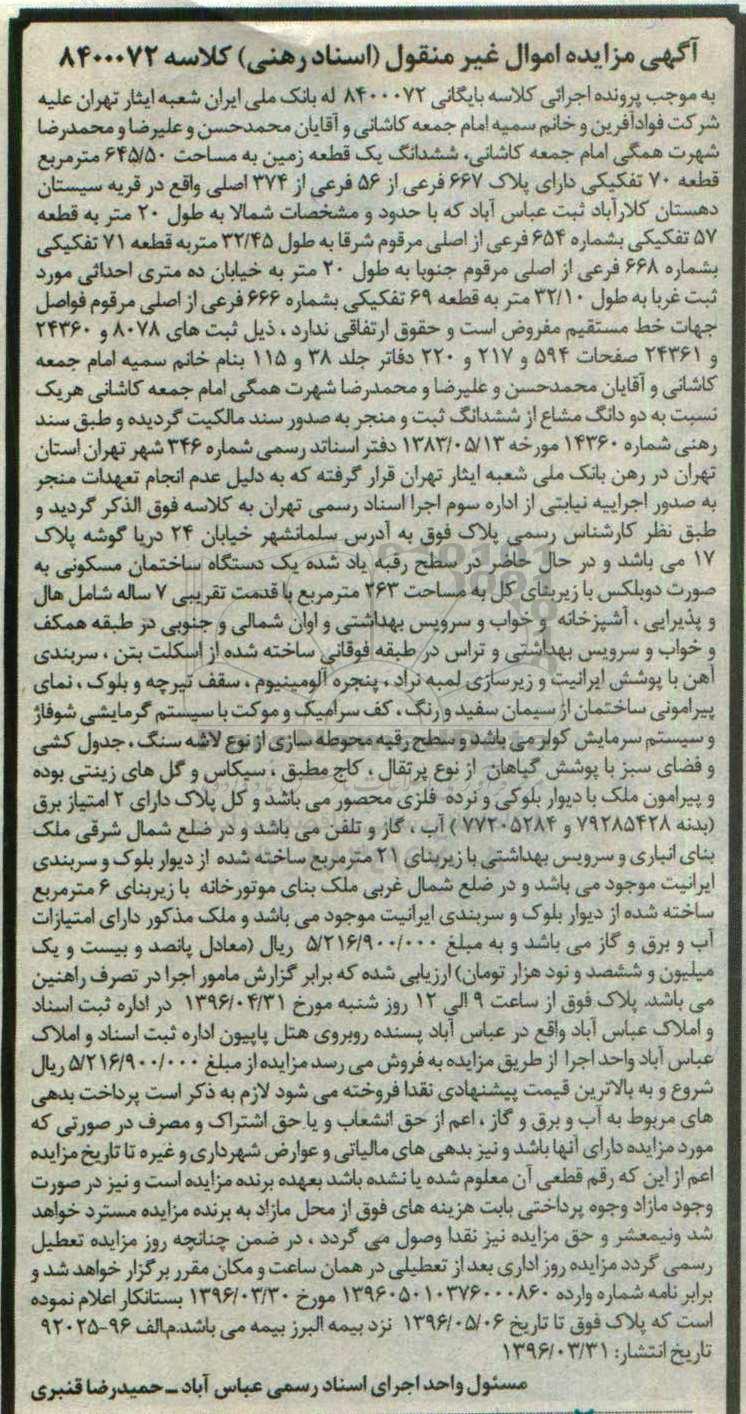 آگهی مزایده اموال غیر منقول (اسناد رهنی) کلاسه ۸۴۰۰۰۷۲
به موجب پرونده اجرائی کلاسه بایگانی ۸۴۰۰۰۷۲ له بانک ملی ایران شعبه ایثار تهران علیه
شرکت فوادآفرین و خانم سمیه امام جمعه کاشانی و آقایان محمدحسن و علیرضا و محمدرضا
شهرت همگی امام جمعه کاشانی، ششدانگ یک قطعه زمین به مساحت ۶۴۵/۵۰ مترمربع
قطعه ۷۰ تفکیکی دارای پلاک ۶۶۷ فرعی از ۵۶ فرعی از ۳۷۴ اصلی واقع در قریه سیستان
دهستان کلارآباد ثبت عباس آباد که با حدود و مشخصات شمالا به طول ۲۰ متر به قطعه
۵۷ تفکیکی بشماره ۶۵۴ فرعی از اصلی مرقوم شرقا به طول ۳۲/۴۵ متربه قطعه ۷۱ تفکیکی
بشماره ۶۶۸ فرعی از اصلی مرقوم جنوبا به طول ۲۰ متر به خیابان ده متری احداثی مورد
ثبت غربا به طول ۳۲/۱۰ متر به قطعه ۶۹ تفکیکی بشماره ۶۶۶ فرعی از اصلی مرقوم فواصل
جهات خط مستقیم مفروض است و حقوق ارتفاقی ندارد ، ذیل ثبت های ۸۰۷۸ و ۲۴۳۶۰
و ۲۴۳۶۱ صفحات ۵۹۴ و ۲۱۷ و ۲۲۰ دفاتر جلد ۳۸ و ۱۱۵ بنام خانم سمیه امام جمعه
کاشانی و آقایان محمدحسن و علیرضا و محمدرضا شهرت همگی امام جمعه کاشانی هریک
نسبت به دو دانگ مشاع از ششدانگ ثبت و منجر به صدور سند مالکیت گردیده و طبق سند
رهنی شماره ۱۴۳۶۰ مورخه ۱۳۸۳/۰۵/۱۳ دفتر اسناتد رسمی شماره ۳۴۶ شهر تهران استان
تهران در رهن بانک ملی شعبه ایثار تهران قرار گرفته که به دلیل عدم انجام تعهدات منجر
به صدور اجراییه نیابتی از اداره سوم اجرا اسناد رسمی تهران به کلاسه فوق الذکر گردید و
طبق نظر کارشناس رسمی پلاک فوق به آدرس سلمانشهر خیابان ۲۴ دریا گوشه پلاک
۱۷ می باشد و در حال حاضر در سطح رقبه یاد شده یک دستگاه ساختمان مسکونی به
صورت دوبلکس با زیربنای کل به مساحت ۲۶۳ مترمربع با قدمت تقریبی ۷ ساله شامل هال
و پذیرایی ، آشپزخانه و خواب و سرویس بهداشتی و اوان شمالی و جنوبی در طبقه همکف
و خواب و سرویس بهداشتی و تراس در طبقه فوقانی ساخته شده از اسکلت بتن ، سربندی
آهن با پوشش ایرانیت و زیرسازی لمبه نراد ، پنجره آلومینیوم ، سقف تیرچه و بلوک ، نمای
پیرامونی ساختمان از سیمان سفید و رنگ ، کف سرامیک و موکت با سیستم گرمایشی شوفاژ
و سیستم سرمایش کولر می باشد و سطح رقبه محوطه سازی از نوع لاشه سنگ ، جدول کشی
و فضای سبز با پوشش گیاهان از نوع پرتقال ، کاج مطبق ، سیکاس و گل های زینتی بوده
و پیرامون ملک با دیوار بلوکی و نرده فلزی محصور می باشد و کل پلاک دارای ۲ امتیاز برق
(بدنه ۷۹۲۸۵۴۲۸ و ۷۷۲۰۵۲۸۴ ) آب ، گاز و تلفن می باشد و در ضلع شمال شرقی ملک
بنای انباری و سرویس بهداشتی با زیربنای ۲۱ مترمربع ساخته شده از دیوار بلوک و سربندی
ایرانیت موجود می باشد و در ضلع شمال غربی ملک بنای موتورخانه با زیربنای ۶ مترمربع
ساخته شده از دیوار بلوک و سربندی ایرانیت موجود می باشد و ملک مذکور دارای امتیازات
آب و برق و گاز می باشد و به مبلغ ۵/۲۱۶/۹۰۰/۰۰۰ ریال (معادل پانصد و بیست و یک
میلیون و ششصد و نود هزار تومان) ارزیابی شده که برابر گزارش مامور اجرا در تصرف راهنین
می باشد. پلاک فوق از ساعت ۹ الی ۱۲ روز شنبه مورخ ۱۳۹۶/۰۴/۳۱ در اداره ثبت اسناد
و املاک عباس آباد واقع در عباس آباد پسنده روبروی هتل پاپیون اداره ثبت اسناد و املاک
عباس آباد واحد اجرا از طریق مزایده به فروش می رسد مزایده از مبلغ ۵/۲۱۶/۹۰۰/۰۰۰ ریال
شروع و به بالاترین قیمت پیشنهادی نقدا فروخته می شود لازم به ذکر است پرداخت بدهی
های مربوط به آب و برق و گاز ، اعم از حق انشعاب و یا حق اشتراک و مصرف در صورتی که
مورد مزایده دارای آنها باشد و نیز بدهی های مالیاتی و عوارض شهرداری و غیره تا تاریخ مزایده
اعم از این که رقم قطعی آن معلوم شده یا نشده باشد بعهده برنده مزایده است و نیز در صورت
وجود مازاد وجوه پرداختی بابت هزینه های فوق از محل مازاد به برنده مزایده مسترد خواهد
شد ونیمعشر و حق مزایده نیز نقدا وصول می گردد ، در ضمن چنانچه روز مزایده تعطیل
رسمی گردد مزایده روز اداری بعد از تعطیلی در همان ساعت و مکان مقرر برگزار خواهد شد و
برابر نامه شماره وارده ۱۳۹۶۰۵۰۱۰۳۷۶۰۰۰۸۶۰ مورخ ۱۳۹۶/۰۳/۳۰ بستانکار اعلام نموده
است که پلاک فوق تا تاریخ ۱۳۹۶/۰۵/۰۶ نزد بیمه البرز بیمه می باشد.م‌الف ۹۶-۹۲۰۲۵
تاریخ انتشار: ۱۳۹۶/۰۳/۳۱
مسئول واحد اجرای اسناد رسمی عباس آباد ــ حمیدرضا قنبری